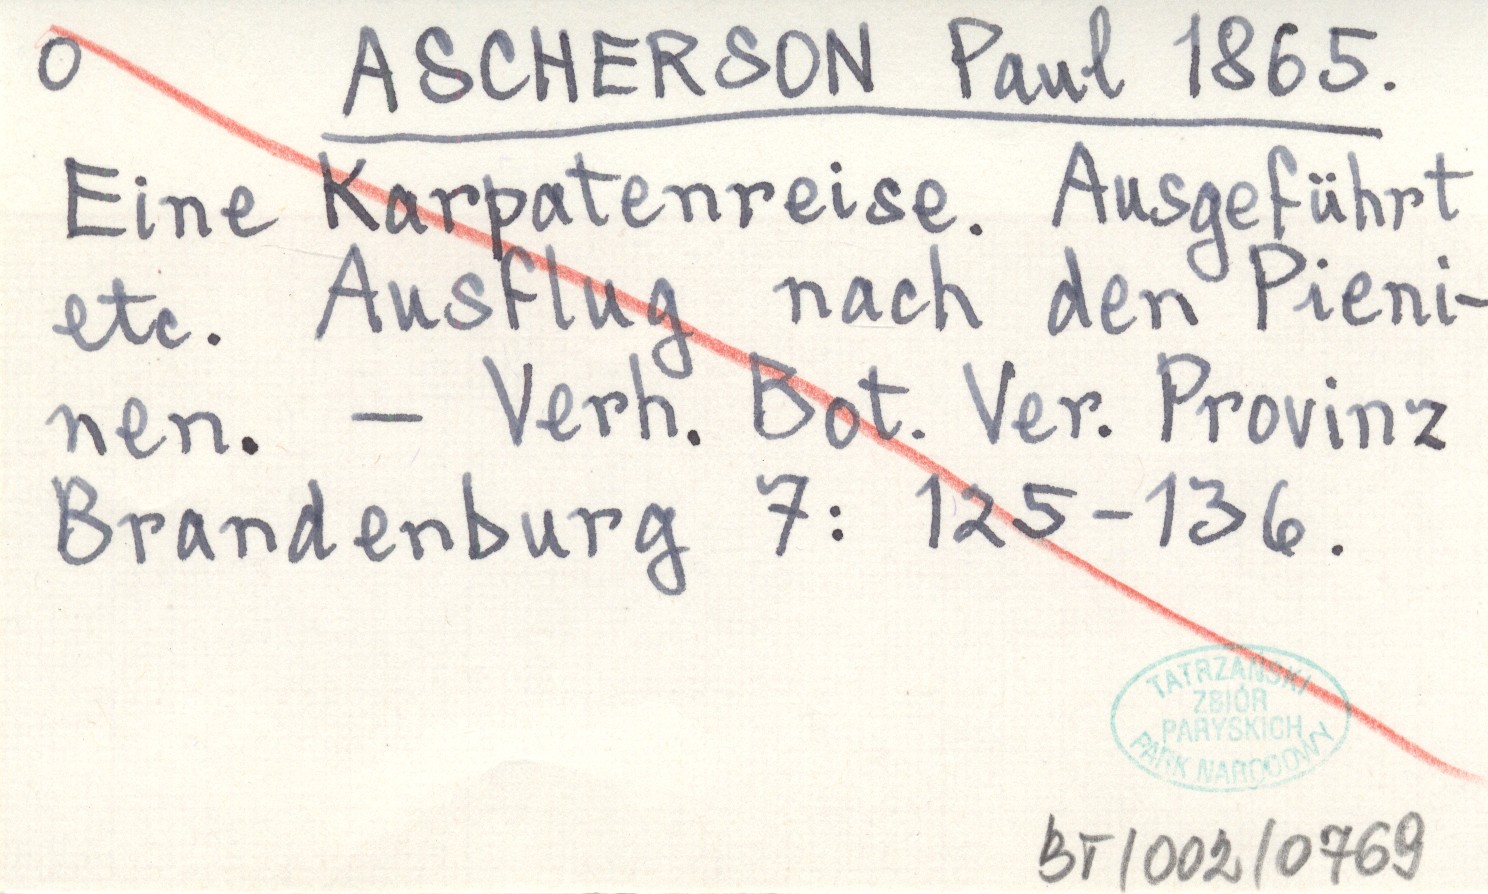 O ASCHERSON Paul 1865.
Eine Karpatenreise. Ausgeführt
etc. Ausflug nach den Pieni-
nen. — Verh. Bot. Ver. Provinz
Brandenburg 7: 125-136.
TATRZAŃSKI
ZBIÓR
PARYSKICH
PARK NARODOWY
BT/002/0769